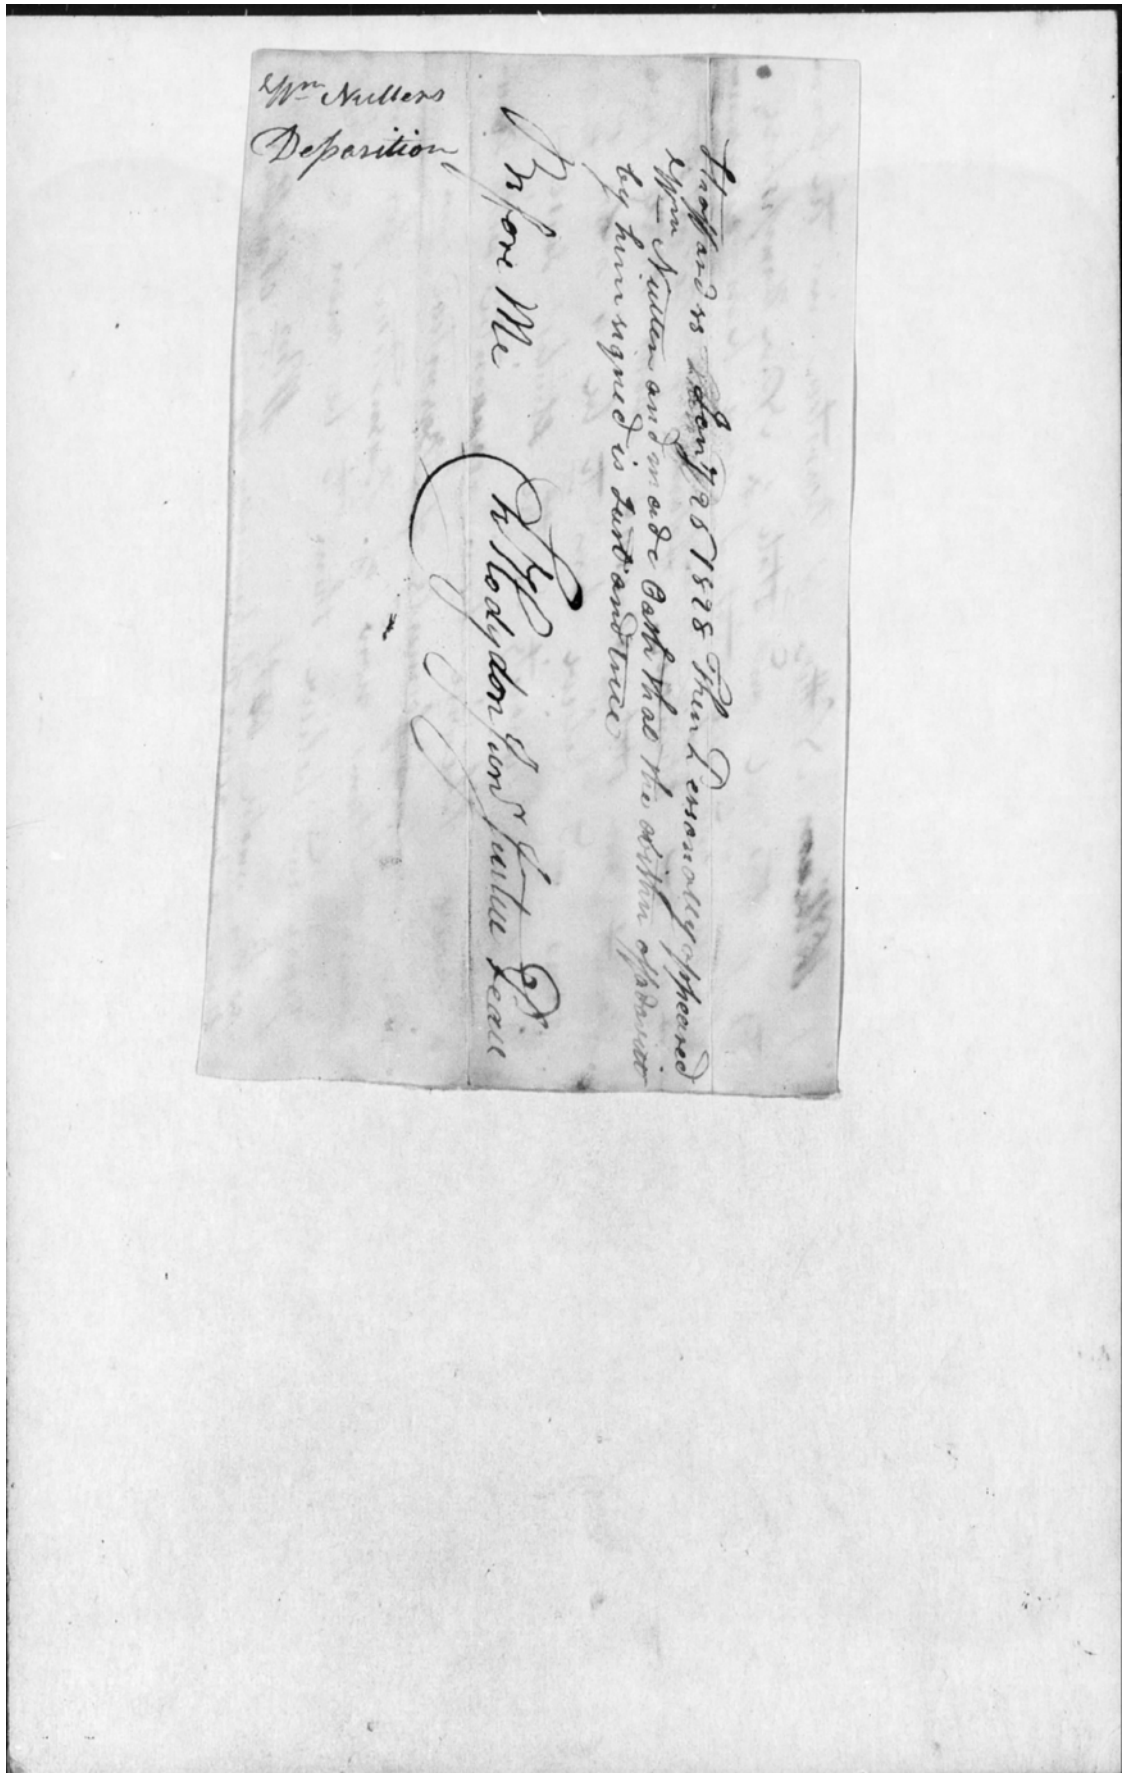 Wm Nutters
Deposition
Strafford ss Jany 25 1828 Then Personally appeared
Wm Nutter and made Oath that the within affidavit
by him signed is Just and true
Before Me
Ch Hodgdon Junr Justice Peace